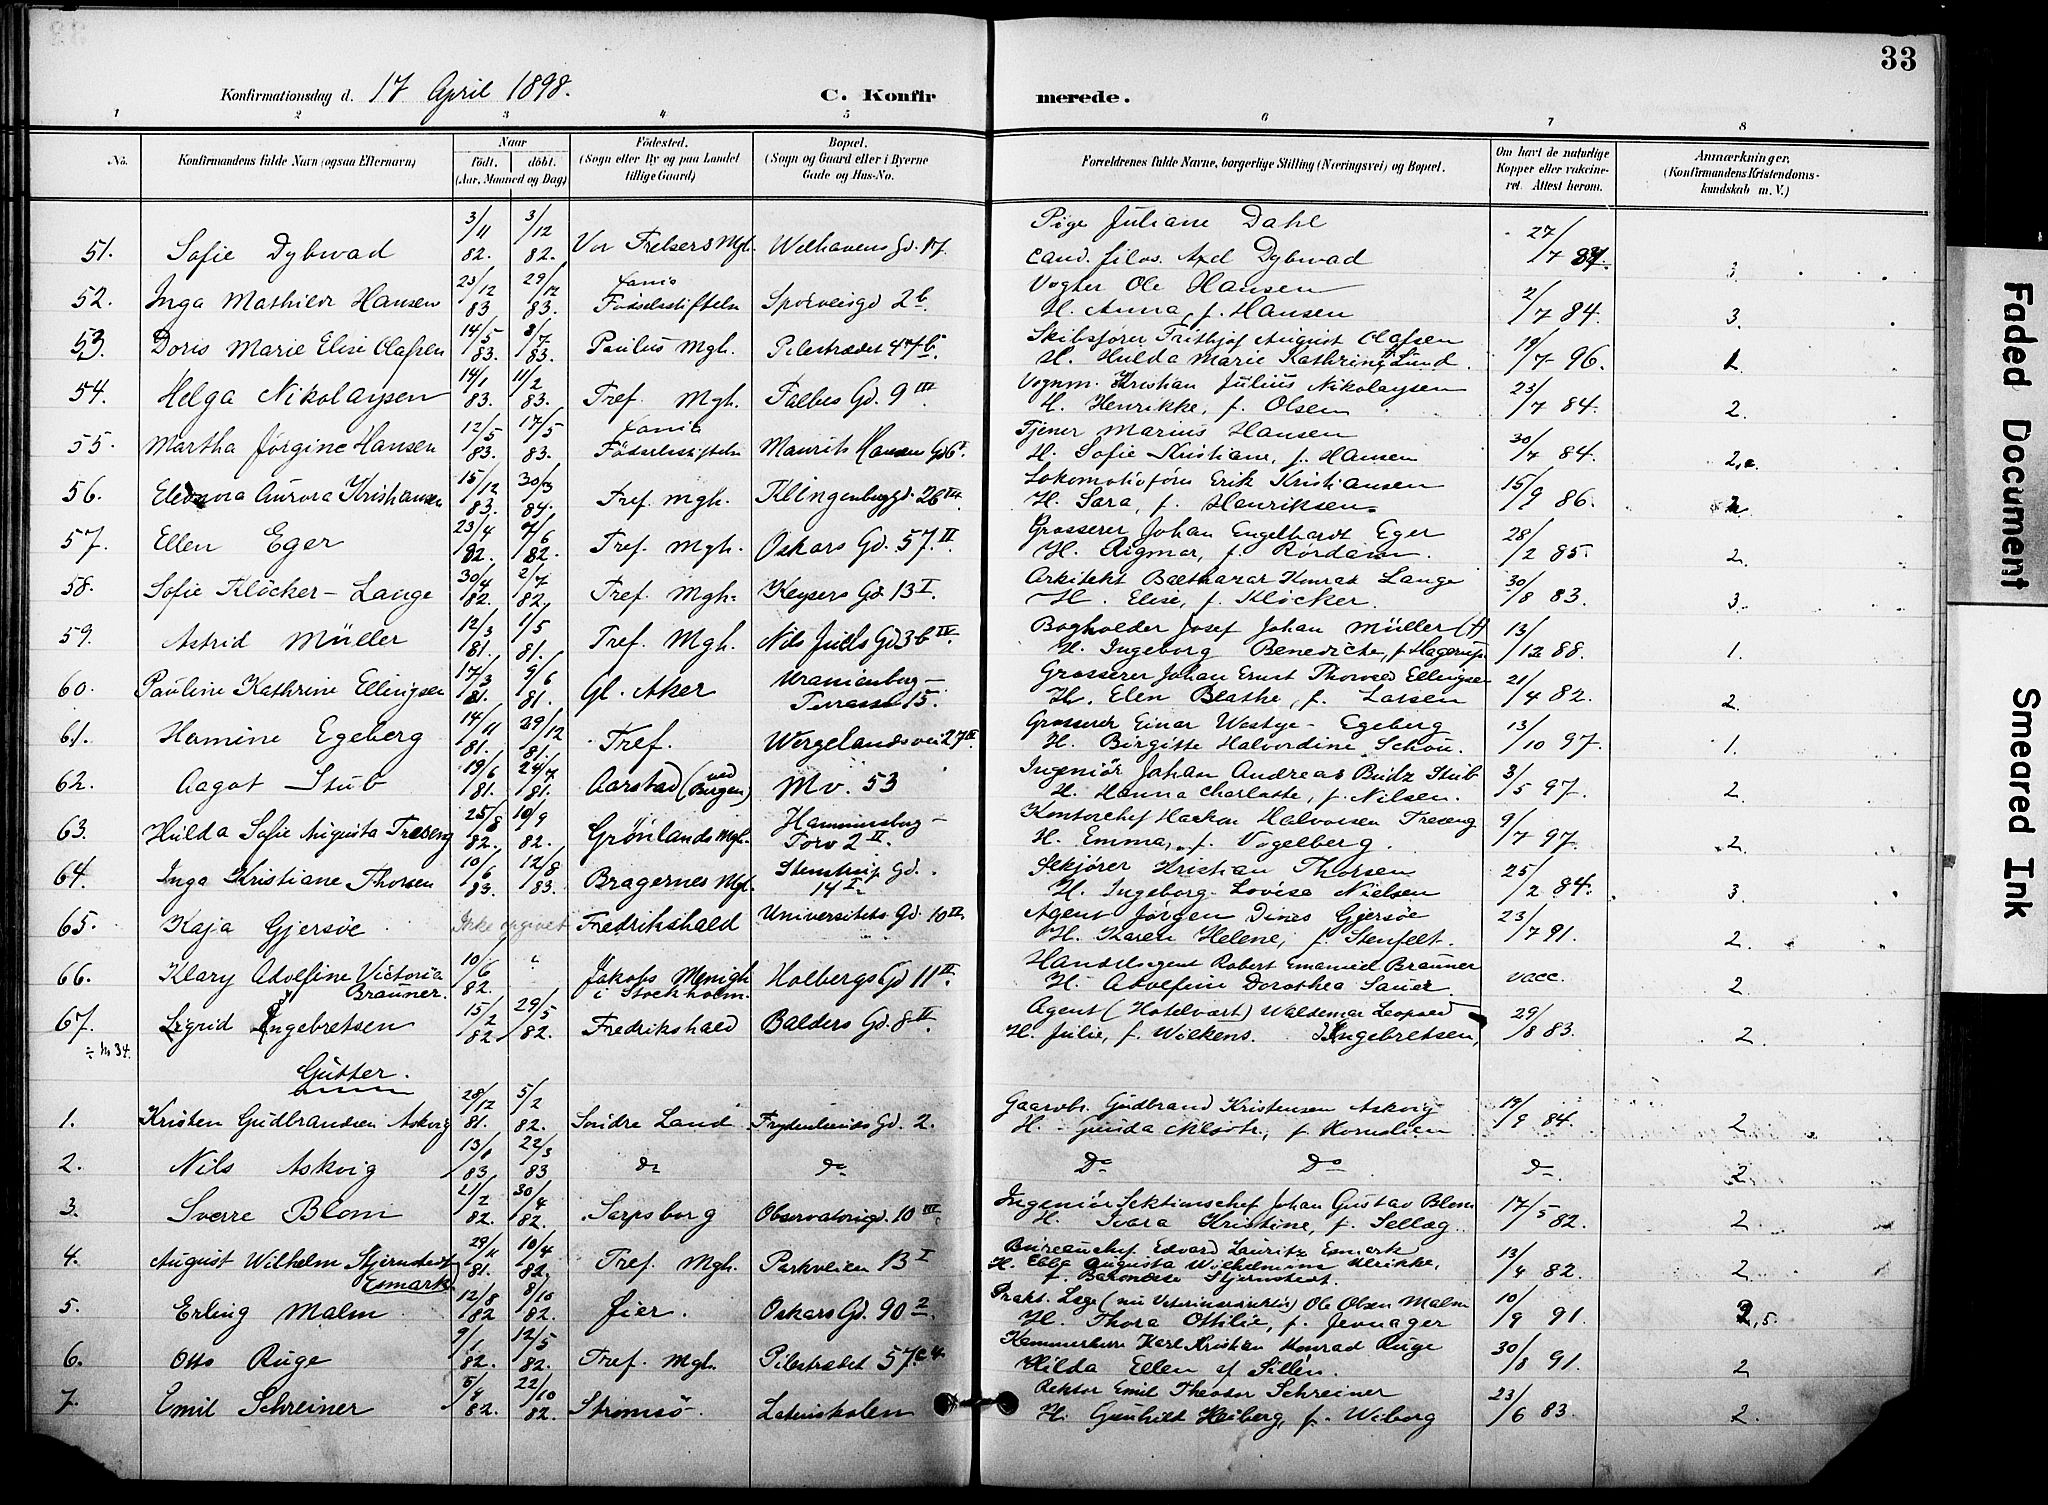 33
Konfirmationsdag d. 17 April 1898. C. Konfirmerede.
1 2 3 4 5 6 7 8
No. Konfirmandens fulde Navn (ogsaa Efternavn) Naar födt. döbt. (Aar, Maaned og Dag) Födested. (Sogn eller By og paa Landet tillige Gaard) Bopæl. (Sogn og Gaard eller i Byerne Gade og Hus-No. Forældrenes fulde Navne, borgerlige Stilling (Næringsvei) og Bopæl. Om havt de naturlige Kopper eller vakcineret. Attest herom. Anmærkninger, (Konfirmandens Kristendomskundskab m. V.)
51. Sofie Dybwad 3/11 82. 3/12 82. Vor Frelsers Mgh. Welhavens Gd. 17. Pige Juliane Dahl
cand. filos. Axel Dybwad 27/7 87. 3
52. Inga Mathilde Hansen 23/12 83 29/12 83. Födselsstiftelsen Sporveisgd 2b. Vogter Ole Hansen
H. Anna, f. Hansen 2/7 84. 3.
53. Doris Marie Elise Olafsen 14/5 83. 8/7 83. Paulus Mgh. Pilestrædet 47b. Skibsfører Frithjof August Olafsen
H. Hulda Marie Kathrine Lund. 19/7 96. 1.
54. Helga Nikolaysen 14/1 83. 11/2 83. Tref. Mgh. Falbes Gd. 9 III. Vognm. Kristian Julius Nikolaysen
H. Henrikke, f. Olsen 23/7 84. 2.
55. Martha Jørgine Hansen 12/5 83. 17/5 83. Födselsstiftelsen Maurits Hansen Gd 6 I. Tjener Marius Hansen
H. Sofie Kristiane, f. Hansen 30/7 84.
56. Eleonora Aurora Kristiansen 15/12 83. 30/3 84. Tref. Mgh. Klingenberggd. 2b III. Lokomotivförer Erik Kristiansen
H. Sara, f. Henriksen. 15/9 86. 2
57. Ellen Eger 23/4 82. 7/6 82. Tref. Mgh. Oskars Gd. 57. II. Grosserer Johan Engelhardt Eger
H. Rigmor, f. Rørdam. 28/2 85. 2.
58. Sofie Klöcker-Lange 30/4 82. 2/7 82. Tref. Mgh. Keysers Gd 13 I. Arkitekt Balthazar Konrad Lange
H. Elise, f. Klöcker. 30/8 83. 3.
59. Astrid Müller 12/3 81. 1/5 81. Tref. Mgh. Nils Juels Gd 3b IV. Bogholder Josef Johan Müller (†)
H. Ingeborg Benedicte, f. Hagerup. 13/12 88. 1.
60. Pauline Kathrine Ellingsen 17/3 81. 9/6 81. Gl. Aker Uranienborg-
Terrasse 15. Grosserer Johan Ernst Thorvald Ellingsen
H. Elen Beathe, f. Larsen 21/4 82. 2.
61. Hermine Egeberg 14/11 81. 29/12 81. Tref. Wergelandsvei 27 II. Grosserer Einar Westye Egeberg
H. Birgitte Halvordine Schou. 13/10 97. 1.
62. Aagot Stub 19/6 81. 24/7 81. Aarstad (ved Bergen) Mv. 53 Ingeniör Johan Andreas Budz Stub
H. Hanna Charlotte, f. Nilsen. 3/5 97. 2.
63. Hulda Sofie Augusta Treseng 25/8 82. 10/9 82. Grönlands Mgh. Hammersborg-
Torv 2 II. Kontorchef Haakon Halvorsen Treseng
H. Emma, f. Vogelberg. 9/7 97. 2.
64. Inga Kristiane Thorsen 10/6 83. 12/8 83. Bragernes Mgh. Stenstrup Gd.
14 I. Kristian Thorsen
H. Ingeborg Lovise Nielsen 25/2 84. 3.
65. Kaja Gjersøe Ikke opgivet Fredrikshald Universitets Gd. 10 II. Agent Jörgen Dines Gjersøe
H. Karen Helene, f. Stenfelt. 23/7 91. 2.
66. Klary Adolfine Victoria
Brauner. 10/6 82. Jakobs Menigh.
i Stockholm. Holbergs Gd 11 II. Handelsagent Robert Emanuel Brauner
H. Adolfine Dorothea Sauer. vacc. 2.
67. Sigrid Ingebretsen 15/2 82. 29/5 82. Fredrikshald Balders Gd. 8 II. Agent (Hotelvært) Waldemar Leopold
H. Julie, f. Wilkens. Ingebretsen, 29/8 83. 2.
÷ No 34.
Gutter.
1. Kristen Gudbrandsen Askvig 28/12 81. 5/2 82. Söndre Land Frydenlunds Gd. 2. Gaardbr. Gudbrand Kristensen Askvig
H. f. Kornelsen 19/9 84. 2.
2. Nils Askvig 13/1 83. 22/3 83 do do Do Do do 2.
3. Sverre Blom 21/2 82. 30/4 82. Sarpsborg Observatoriegd. 10 III. Ingeniör, Sektionschef Johan Gustav Blom
H. Kristine, f. Sellæg. 17/5 82. 2.
4. August Wilhelm Stjernstedt
Esmark 29/11 81. 10/4 82. Tref. Mgh. Parkveien 13 I Bureauchef Edvard Lauritz Esmark
H. Ebba Augusta Wilhelmine Ulrikke,
f. Baronesse Stjernstedt. 13/4 82. 2.
5. Erling Malm 12/8 82 8/10 82. Oskars Gd. 90 2. Prakt. Læge (nu Veterinærdirektör) Ole Olsen Malm
H. Thora Ottilie, f. Jevnager 10/9 91. 2,5.
6. Otto Ruge 9/1 82. 12/5 82. Tref. Mgh. Pilestrædet 57c 4. Kammerherre Karl Kristian Konrad Ruge
Hilda Ellen af Sillén. 30/8 91. 2
7. Emil Schreiner 5/9 82. 22/10 82. Strömsö. Latinskolen Rektor Emil Theodor Schreiner
H. Gunhild Heiberg, f. Wiborg 23/6 83. 2.
Faded Document
Smeared Ink